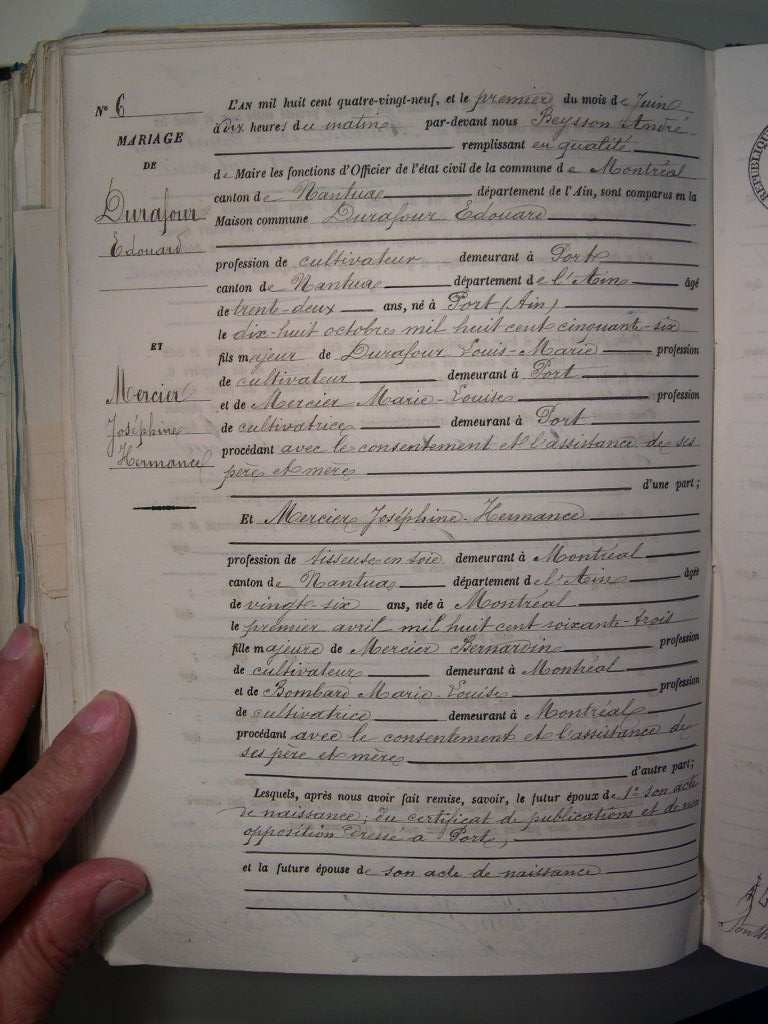 N° 6
MARIAGE
DE
Durafour
Edouard
ET
Mercier
Joséphine
Hermance
L'AN mil huit cent quatre-vingt-neuf, et le premier du mois de Juin
à dix heures du matin par-devant nous Beysson André
remplissant en qualité
de Maire les fonctions d'Officier de l'état civil de la commune de Montréal
canton de Nantua département de l'Ain, sont comparus en la
Maison commune Durafour Edouard
profession de cultivateur demeurant à Port
canton de Nantua département de l'Ain âgé
de trente-deux ans, né à Port (Ain)
le dix-huit octobre mil huit cent cinquante-six
fils majeur de Durafour Louis-Marie profession
de cultivateur demeurant à Port
et de Mercier Marie-Louise profession
de cultivatrice demeurant à Port
procédant avec le consentement et l'assistance de ses
père et mère
d'une part;
Et Mercier Joséphine-Hermance
profession de tisseuse en soie demeurant à Montréal
canton de Nantua département de l'Ain âgée
de vingt-six ans, née à Montréal
le premier avril mil huit cent soixante-trois
fille majeure de Mercier Bernardin profession
de cultivateur demeurant à Montréal
et de Bombard Marie-Louise profession
de cultivatrice demeurant à Montréal
procédant avec le consentement et l'assistance de
ses père et mère
d'autre part;
Lesquels, après nous avoir fait remise, savoir, le futur époux de 1° son acte
de naissance; du certificat de publications et de non
opposition dressé à Port,
et la future épouse de son acte de naissance
RÉPUBLIQUE